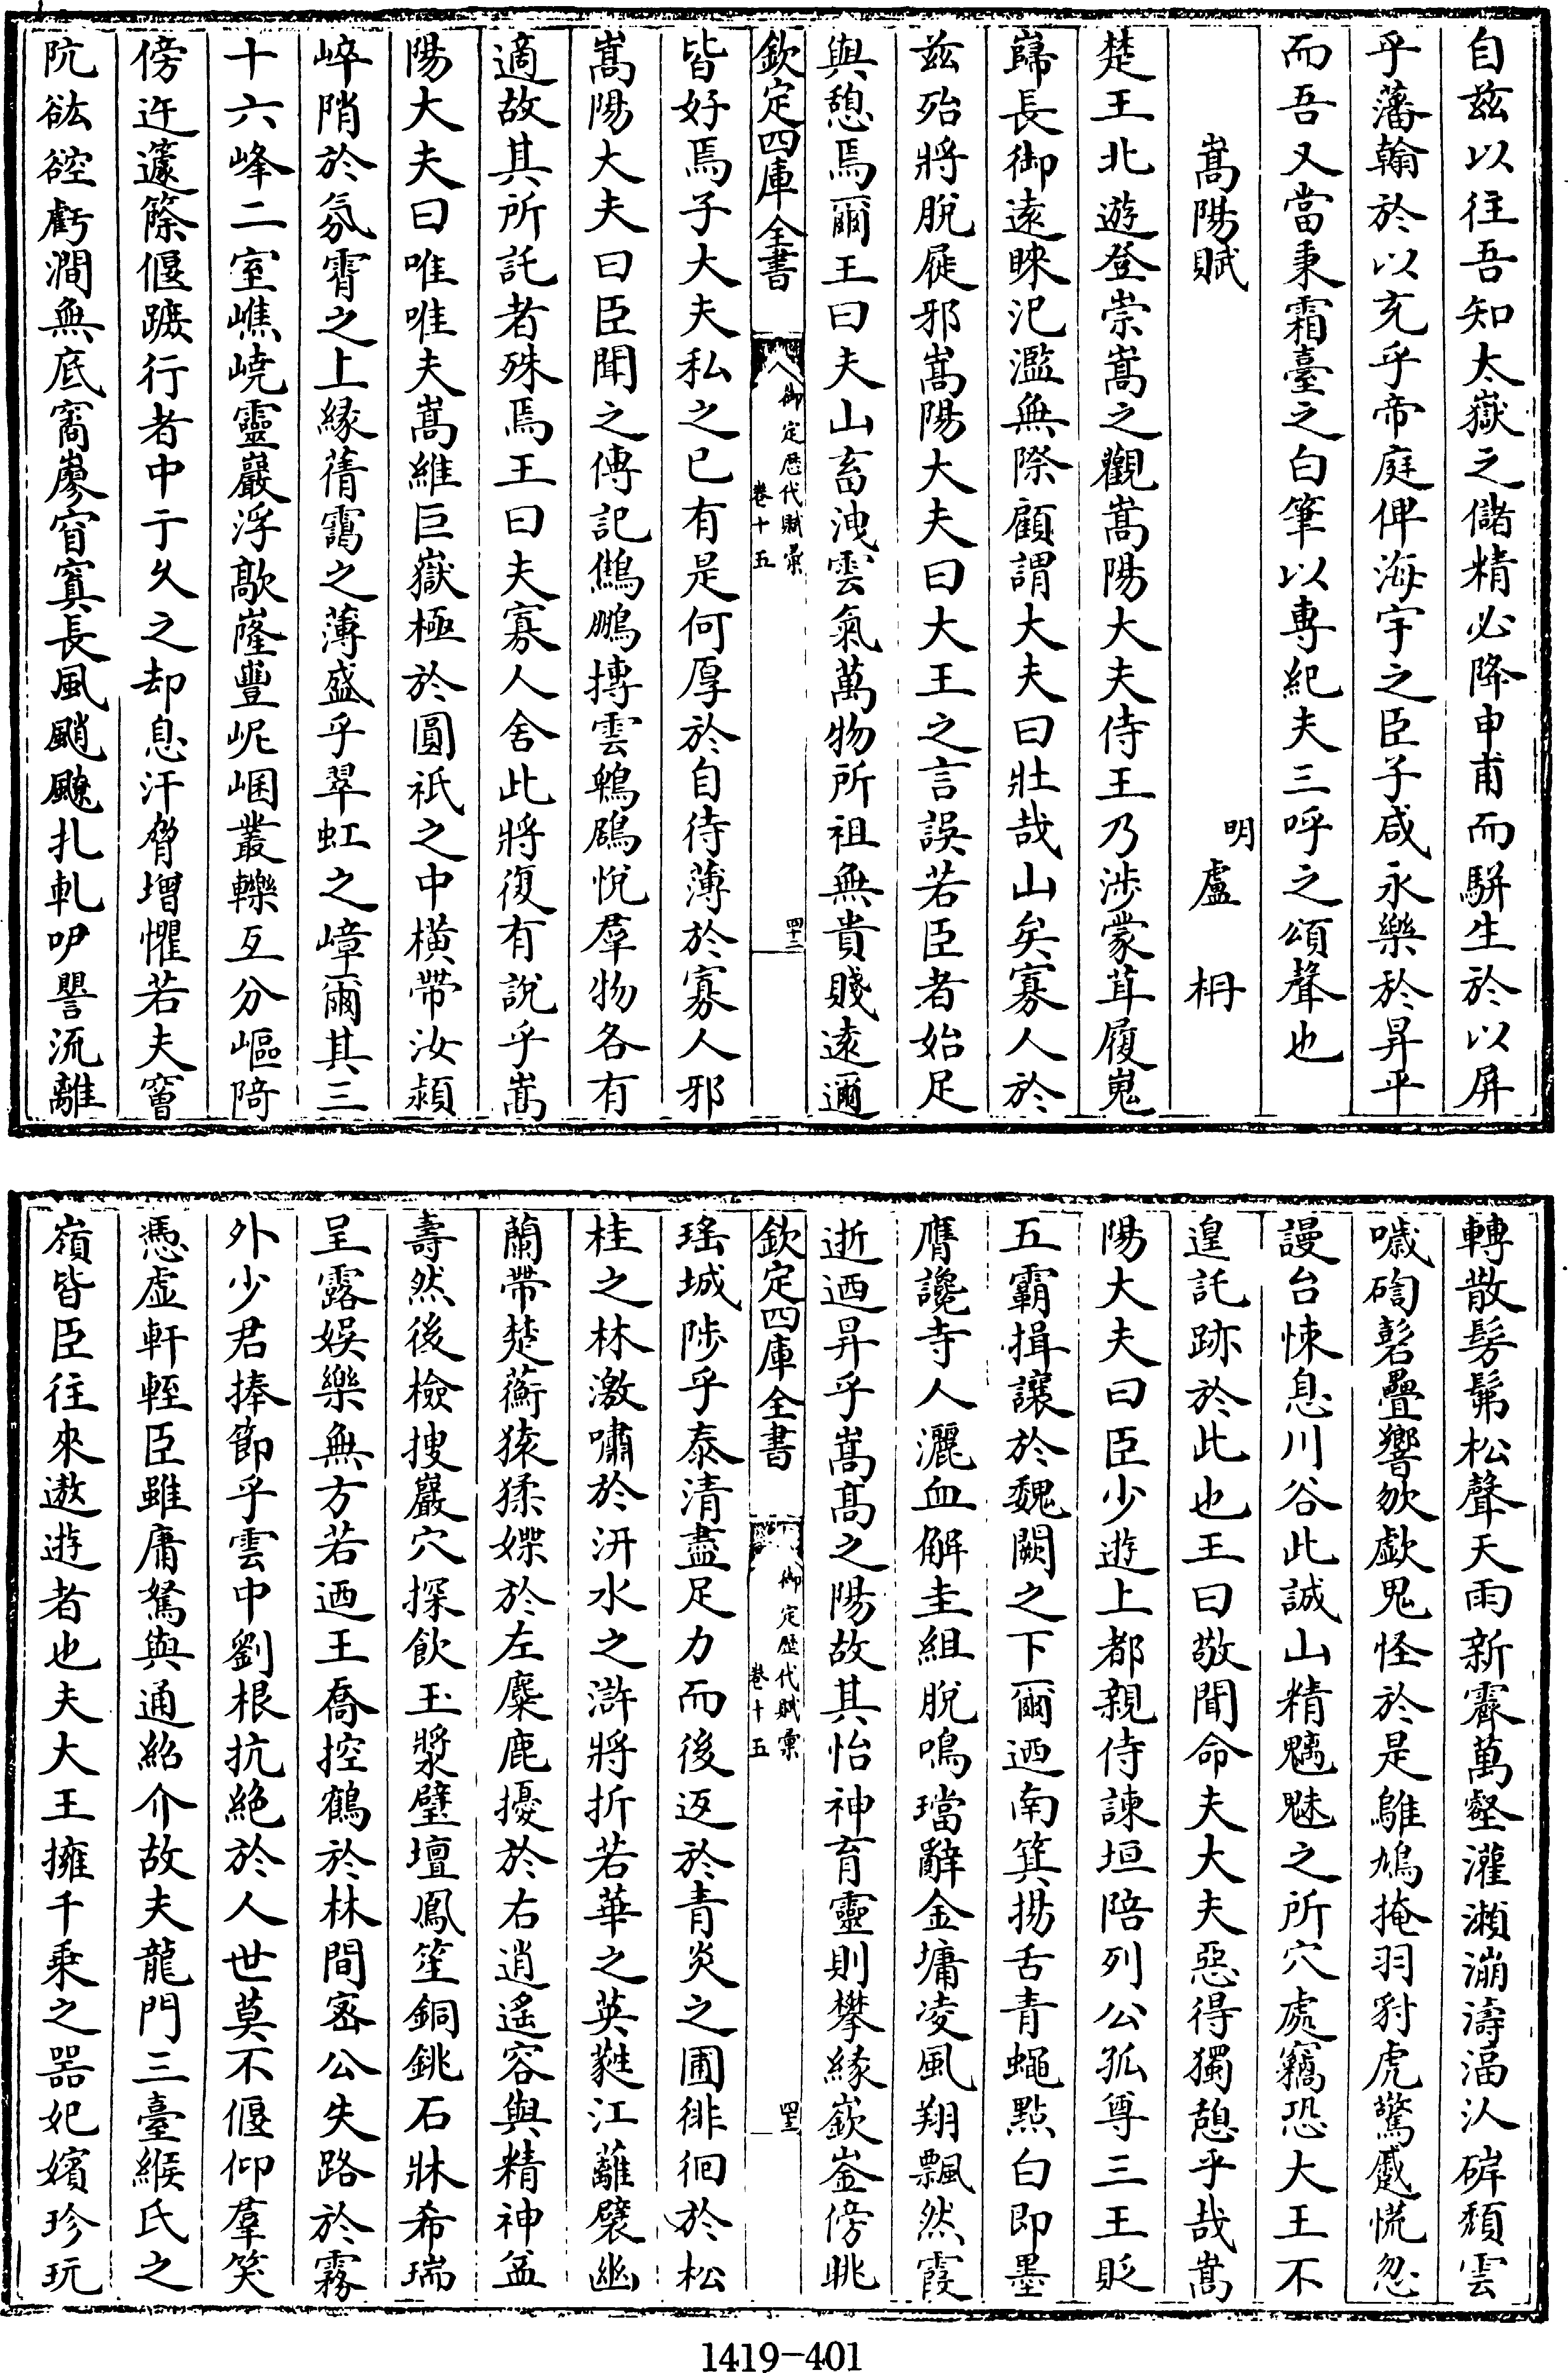 自兹以往吾知太嶽之儲精必降申甫而駢生於以屏
乎藩翰於以充乎帝庭俾海宇之臣子咸永樂於昇平
而吾又當秉霜臺之白筆以專紀夫三呼之頌聲也
嵩陽賦 明盧柟
楚王北遊登崇嵩之觀嵩陽大夫侍王乃涉蒙茸履嵬
巋長御遠睞氾濫無際顧謂大夫曰壯哉山矣寡人於
兹殆將脫屣邪嵩陽大夫曰大王之言誤若臣者始足
與憩焉爾王曰夫山畜洩雲氣萬物所祖無貴賤遠邇
欽定四庫全書 御定歷代賦彙 卷十五 四十二
皆好焉子大夫私之已有是何厚於自待薄於寡人邪
嵩陽大夫曰臣聞之傳記鷦鵬摶雲鶤鵾悅羣物各有
適故其所託者殊焉王曰夫寡人舍此將復有說乎嵩
陽大夫曰唯唯夫嵩維巨嶽極於圓祇之中橫帶汝潁
崪陗於氛霄之上緣蒨靄之薄盛乎翠虹之嶂爾其三
十六峰二室嶕嶢靈巖浮歊嶐豐岮崓叢轢互分嶇陭
傍迕籧篨偃蹠行者中于久之却息汗脅增懼若夫窞
阬谹硿虧澗無底窩嵺窅寘長風颵飉扎軋吚譻流離
轉散髣髴松聲天雨新霽萬壑灌瀨漰濤湢汄硸頹雲
嘁磍磤疊響欻歔鬼怪於是鵻鳩掩羽豺虎驚蹙慌忽
謾台悚息川谷此誠山精魑魅之所穴處竊恐大王不
遑託跡於此也王曰敬聞命夫大夫惡得獨憩乎哉嵩
陽大夫曰臣少遊上都親侍諫垣陪列公孤尊三王貶
五霸揖讓於魏闕之下爾迺南箕揚舌青蠅點白即墨
膺讒寺人灑血解圭組脫鳴璫辭金墉凌風翔飄然霞
逝迺昇乎嵩高之陽故其怡神育靈則攀緣嶔崟傍眺
欽定四庫全書 御定歷代賦彙 卷十五 四十三
瑤城陟乎泰清盡足力而後返於青炎之圃徘徊於松
桂之林激嘯於汧水之滸將折若華之英蕤江蘺襞幽
蘭帶楚蘅猿猱媟於左麋鹿擾於右逍遙容與精神益
壽然後檢搜巖穴探飲玉漿璧壇鳳笙銅銚石牀希瑞
呈露娛樂無方若迺王喬控鶴於林間宻公失路於霧
外少君捧節乎雲中劉根抗絕於人世莫不偃仰羣笑
憑虛軒輊臣雖庸駑與通紹介故夫龍門三臺緱氏之
嶺皆臣往來遨遊者也夫大王擁千乘之器妃嬪珍玩
1419-401